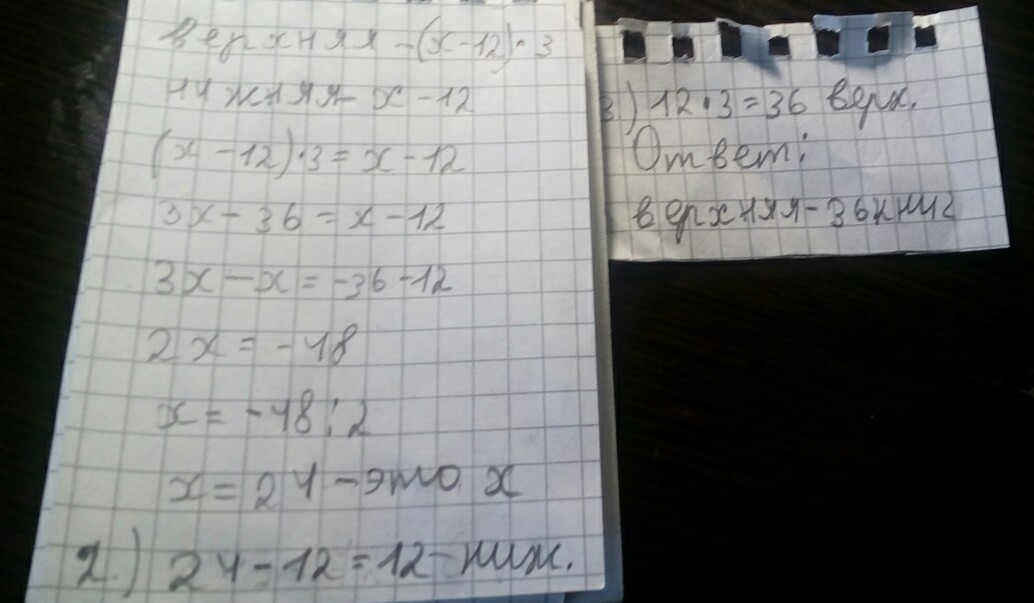 верхняя - (х-12)·3
нижняя х - 12
(х - 12)·3 = х - 12
3х - 36 = х - 12
3х - х = -36 - 12
2х = -48
х = -48:2
х = 24 - это х
2.) 24 - 12 = 12 - ниж.
3) 12·3 = 36 верх.
Ответ:
верхняя - 36 книг